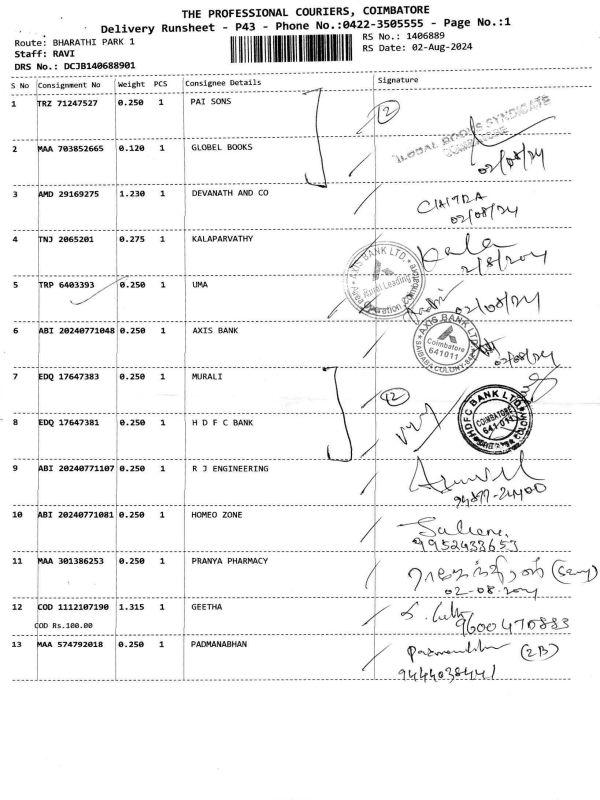 THE PROFESSIONAL COURIERS, COIMBATORE
Delivery Runsheet - P43 - Phone No.:0422-3505555 - Page No.:1
Route: BHARATHI PARK 1
RS No.: 1406889
Staff: RAVI
RS Date: 02-Aug-2024
DRS No.: DCJB140688901
S No Consignment No Weight PCS Consignee Details Signature
1 TRZ 71247527 0.250 1 PAI SONS
2
2 MAA 703852665 0.120 1 GLOBEL BOOKS
GLOBAL BOOKS SYNDICATE
COIMBATORE
02/08/24
3 AMD 29169275 1.230 1 DEVANATH AND CO
CHITRA
02/08/24
4 TNJ 2065201 0.275 1 KALAPARVATHY
Kala
2/8/2024
AXIS BANK LTD.
5 TRP 6403393 0.250 1 UMA
02/08/24
6 ABI 20240771048 0.250 1 AXIS BANK
AXIS BANK LTD
Coimbatore
641011
SAIBABA COLONY
02/08/24
7 EDQ 17647383 0.250 1 MURALI
12
8 EDQ 17647381 0.250 1 H D F C BANK
HDFC BANK LTD.
COIMBATORE
641 011
9 ABI 20240771107 0.250 1 R J ENGINEERING
10 ABI 20240771081 0.250 1 HOMEO ZONE
9952433653
11 MAA 301386253 0.250 1 PRANYA PHARMACY
02-08-2024
12 COD 1112107190 1.315 1 GEETHA
COD Rs.100.00
9600470883
13 MAA 574792018 0.250 1 PADMANABHAN
(2B)
9444038441